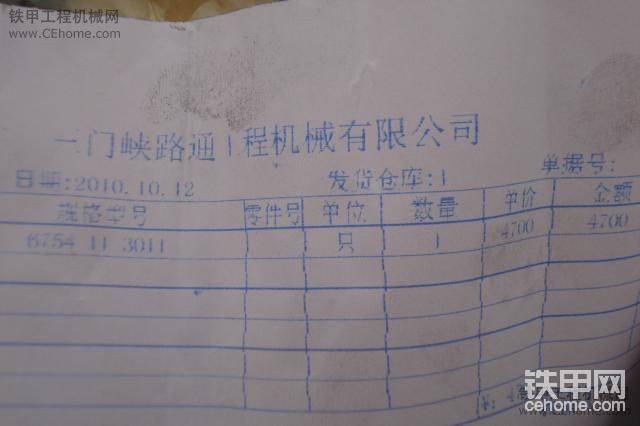 铁甲工程机械网
www.CEhome.com
三门峡路通工程机械有限公司
日期:2010.10.12 发货仓库:1 单据号:
规格型号 零件号 单位 数量 单价 金额
6754 11 3011 只 1 4700 4700
铁甲网
cehome.com